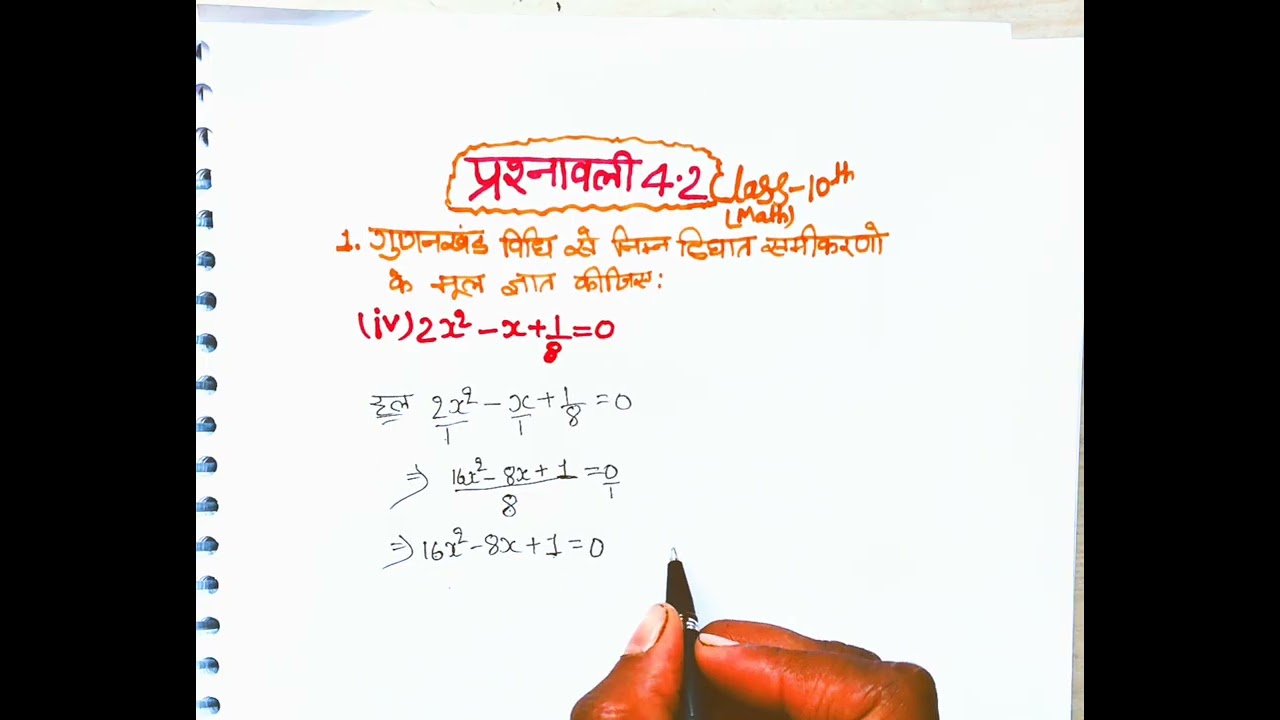 प्रश्नावली 4.2 Class-10th
(Math)
1. गुणनखंड विधि से निम्न द्विघात समीकरणो
के मूल ज्ञात कीजिए:
(iv) 2x² - x + 1/8 = 0
हल 2x²/1 - x/1 + 1/8 = 0
⇒ 16x² - 8x + 1/8 = 0/1
⇒ 16x² - 8x + 1 = 0